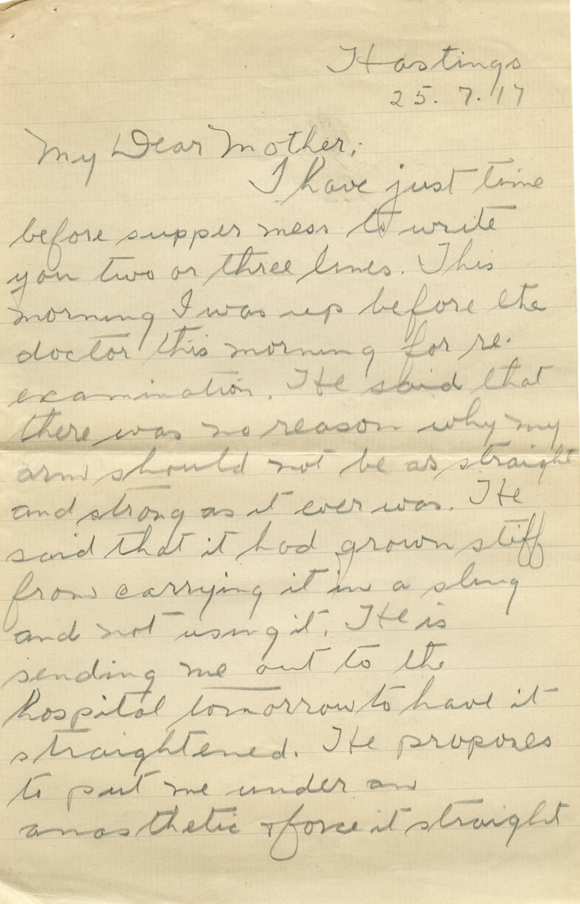 Hastings
25.7.17
My Dear Mother;
I have just time
before supper mess to write
you two or three lines. This
morning I was up before the
doctor this morning for re-
examination. He said that
there was no reason why my
arm should not be as straight
and strong as it ever was. He
said that it had grown stiff
from carrying it in a sling
and not using it. He is
sending me out to the
hospital tomorrow to have it
straightened. He proposes
to put me under an
anasthetic & force it straight